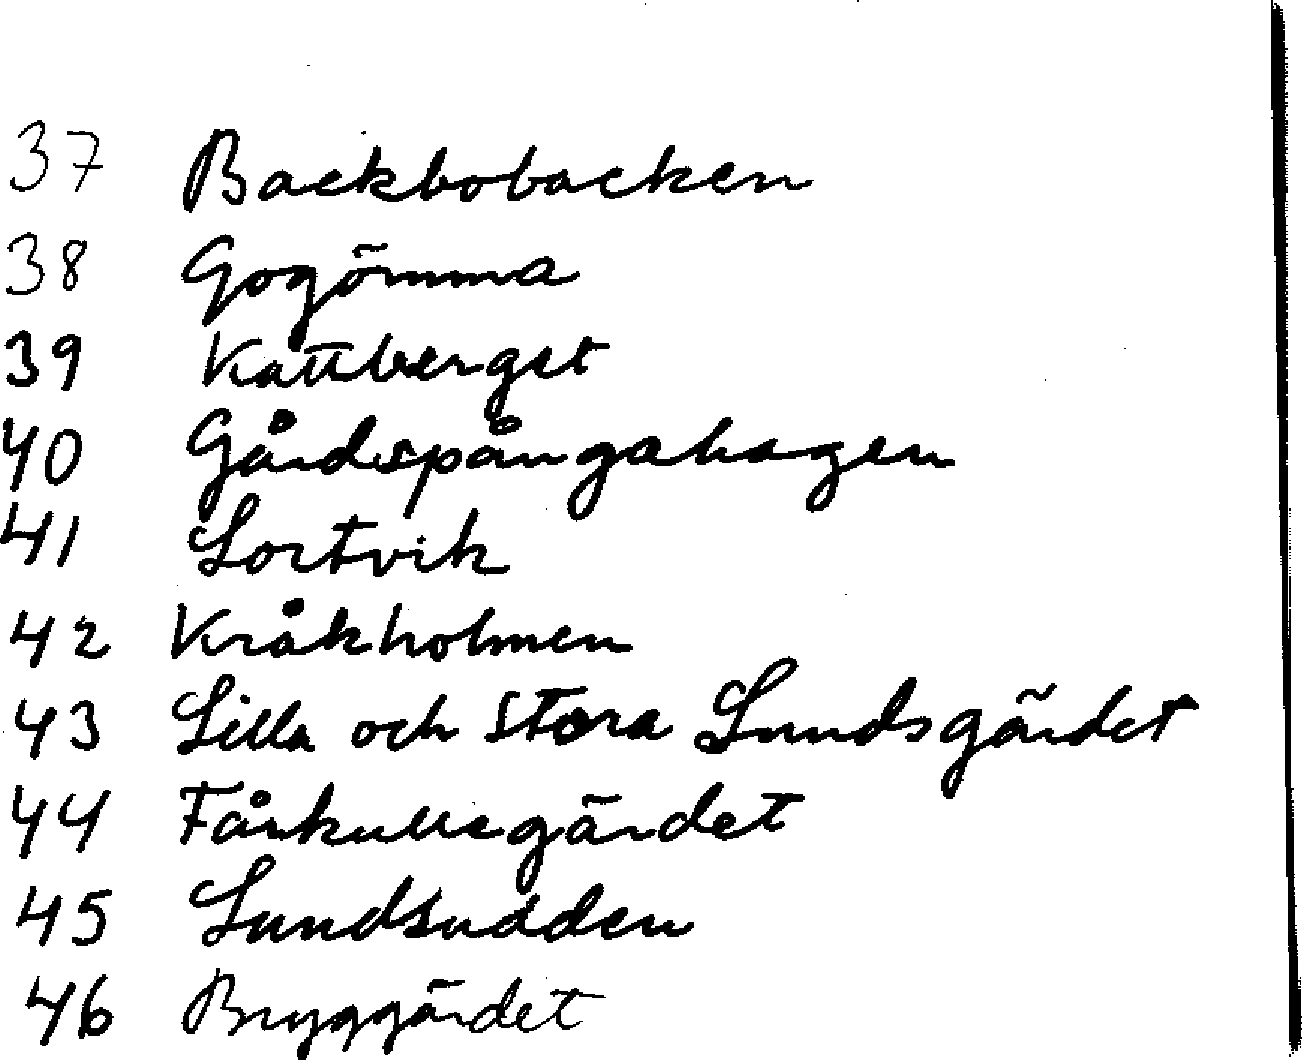 37 Backbobacken
38 Gogömma
39 Kattberget
40 Gårdspångahagen
41 Lortvik
42 Kråkholmen
43 Lilla och Stora Lundsgärdet
44 Fårkullsgärdet
45 Lundsudden
46 Bryggärdet